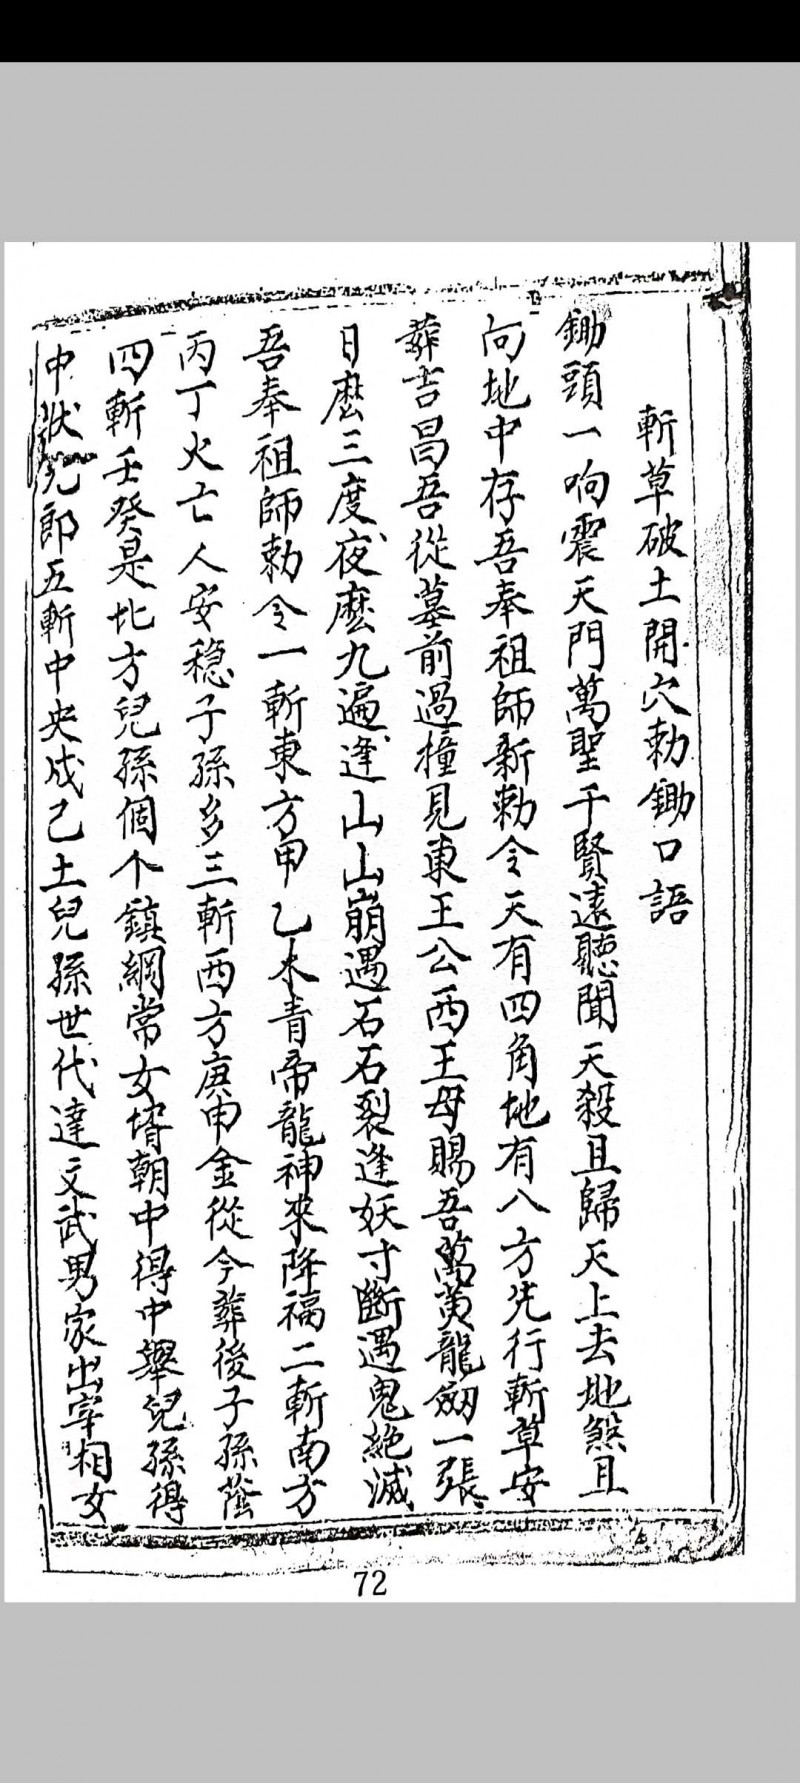 斬草破土開穴勅鋤口語
鋤頭一响震天門萬聖千賢遠聽聞天殺且歸天上去地煞且
向地中存吾奉祖師新勅令天有四角地有八方先行斬草安
葬吉昌吾從墓前過撞見東王公西王母賜吾萬黄龍劒一張
日麽三度夜麽九遍逢山山崩遇石石裂逢妖寸斷遇鬼絶滅
吾奉祖師勅令一斬東方甲乙木青帝龍神來降福二斬南方
丙丁火亡人安穏子孫多三斬西方庚申金從今葬後子孫蔭
四斬壬癸是北方兒孫個个鎮綱常女壻朝中得中舉兒孫得
中狀元郎五斬中央戊己土兒孫世代達文武男家出宰相女
72